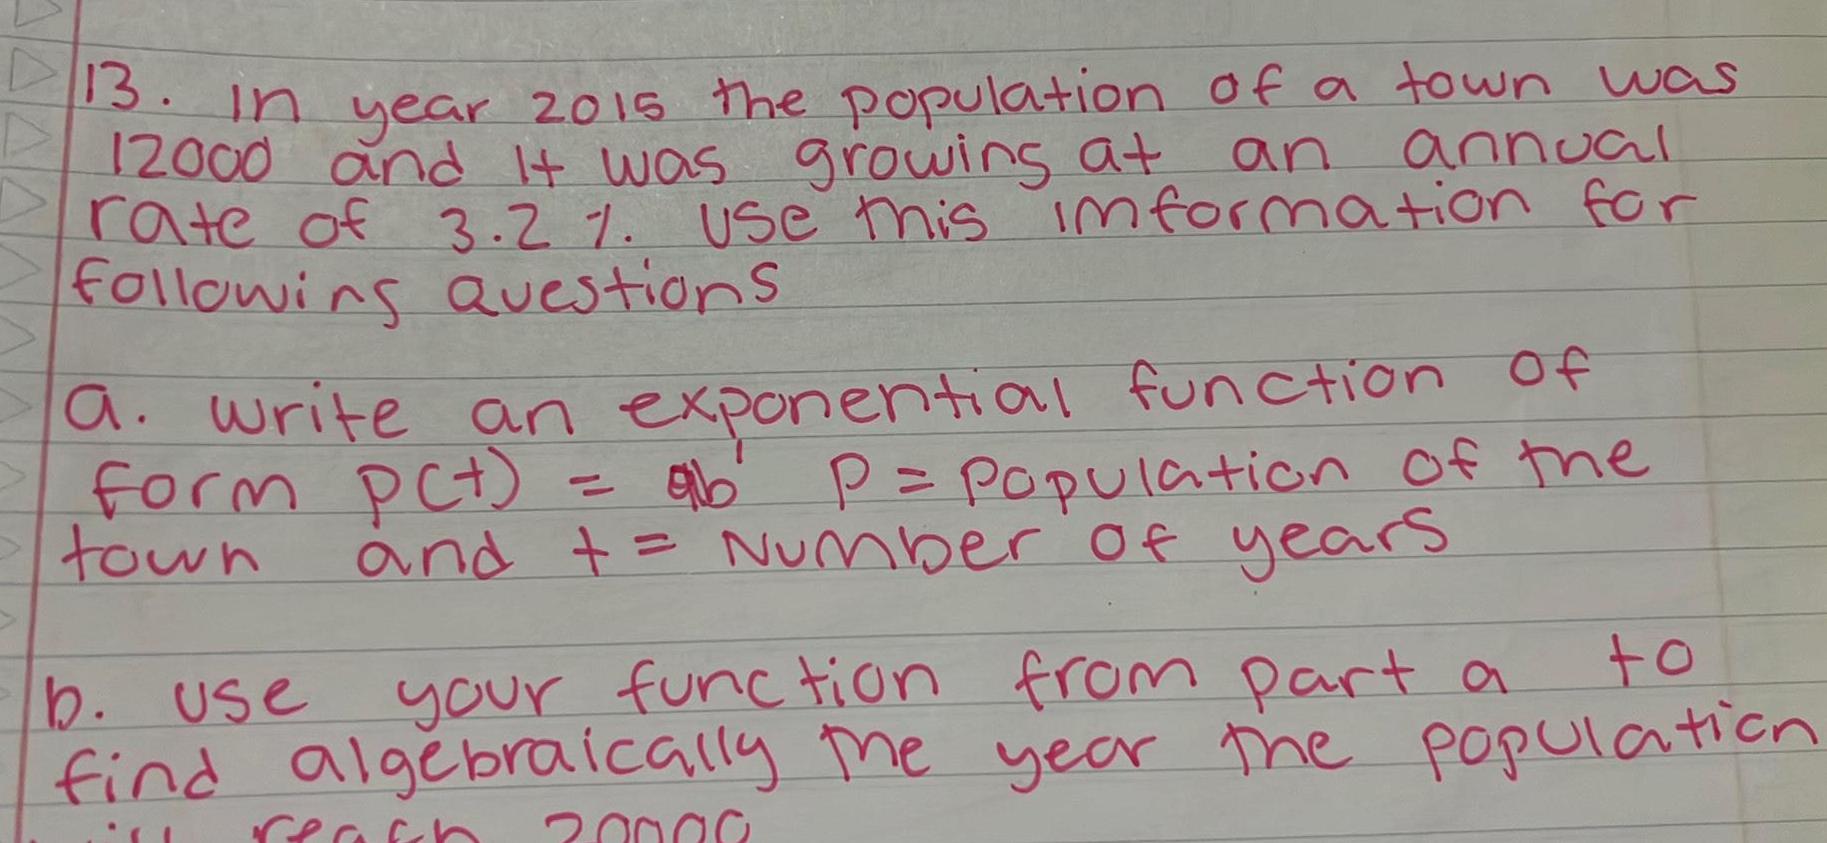 13. In year 2015 the population of a town was
12000 and it was growing at an annual
rate of 3.2 %. Use this imformation for
following questions
a. write an exponential function of
form P(t) = ab^t P = Population of the
town and t = Number of years
b. use your function from part a to
find algebraically the year the population
will reach 20000